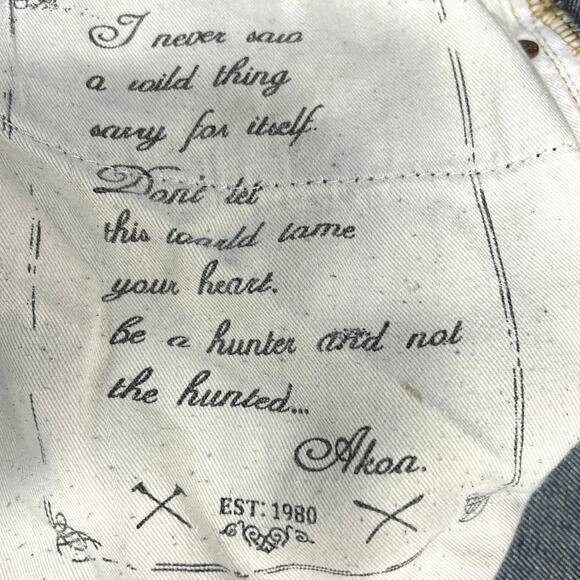 I never saw
a wild thing
sarry for itself.
Don't let
this world tame
your heart.
be a hunter and not
the hunted...
Akoa.
EST: 1980